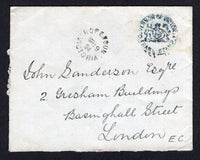 VICTORIA
John Sanderson Esqre
2. Gresham Buildings
Basinghall Street
London
E.C.